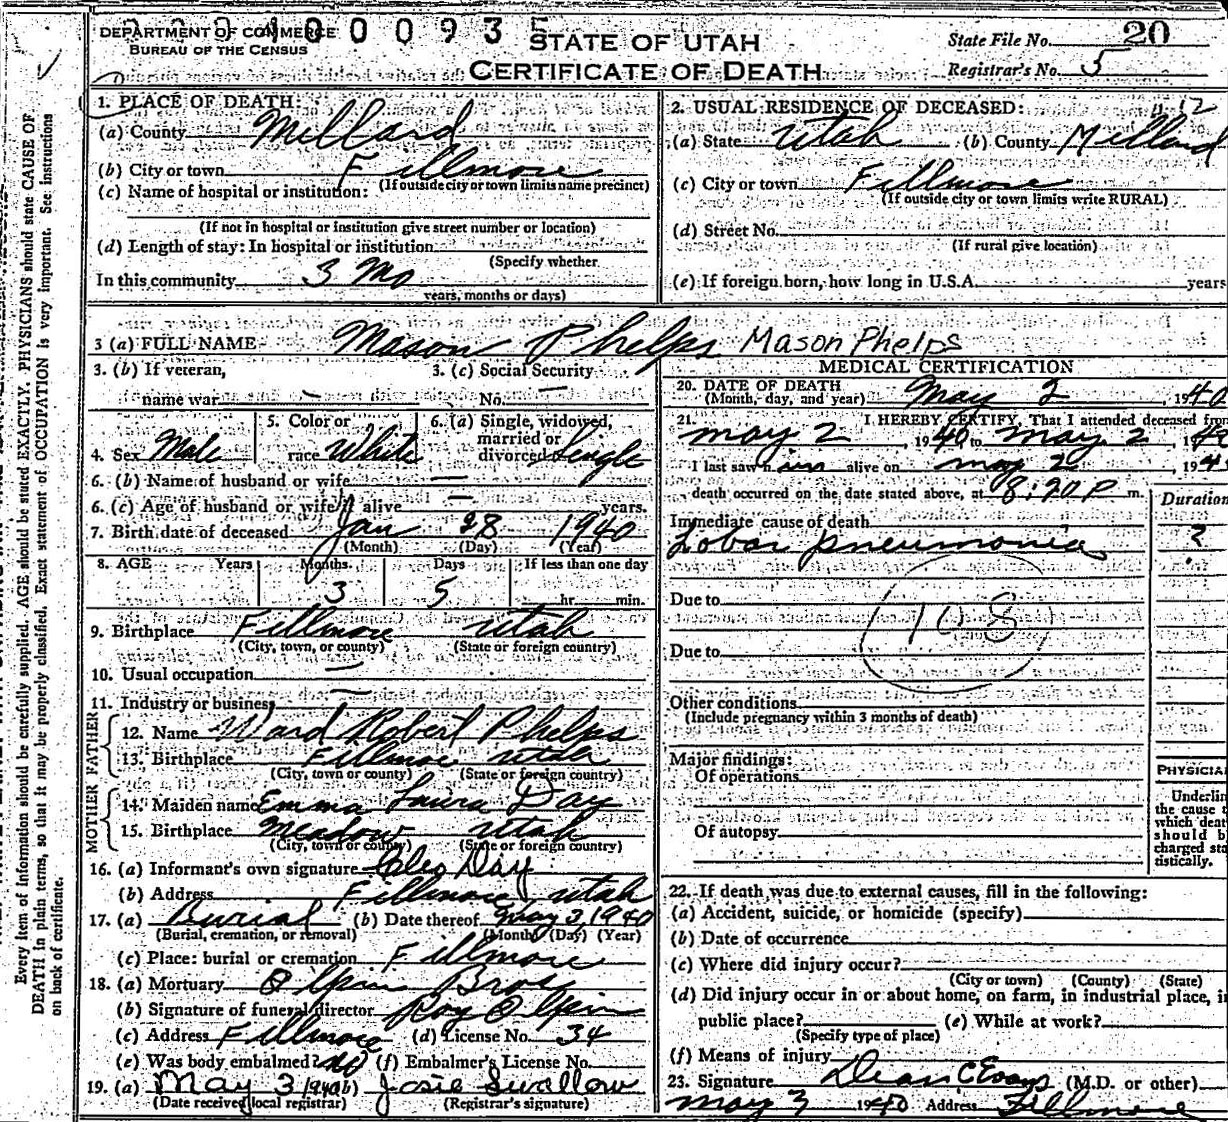 DEPARTMENT OF COMMERCE
BUREAU OF THE CENSUS
000935
STATE OF UTAH
CERTIFICATE OF DEATH
State File No. 20
Registrar's No. 5
1. PLACE OF DEATH:
(a) County Millard
(b) City or town Fillmore
(If outside city or town limits name precinct)
(c) Name of hospital or institution:
(If not in hospital or institution give street number or location)
(d) Length of stay: In hospital or institution
(Specify whether
In this community 3 Mo
years, months or days)
2. USUAL RESIDENCE OF DECEASED:
12
(a) State Utah (b) County Millard
(c) City or town Fillmore
(If outside city or town limits write RURAL)
(d) Street No.
(If rural give location)
(e) If foreign born, how long in U.S.A. years
3 (a) FULL NAME Mason Phelps Mason Phelps
3. (b) If veteran, name war —
3. (c) Social Security No. —
4. Sex Male
5. Color or race White
6. (a) Single, widowed, married or divorced Single
6. (b) Name of husband or wife —
6. (c) Age of husband or wife if alive — years.
7. Birth date of deceased Jan 28 1940
(Month) (Day) (Year)
8. AGE Years Months Days If less than one day
3 5 hr. min.
9. Birthplace Fillmore Utah
(City, town, or county) (State or foreign country)
10. Usual occupation —
11. Industry or business —
FATHER
12. Name Ward Robert Phelps
13. Birthplace Fillmore Utah
(City, town or county) (State or foreign country)
MOTHER
14. Maiden name Emma Laura Day
15. Birthplace Meadow Utah
(City, town or county) (State or foreign country)
16. (a) Informant's own signature Cleo Day
(b) Address Fillmore Utah
17. (a) Burial (b) Date thereof May 3, 1940
(Burial, cremation, or removal) (Month) (Day) (Year)
(c) Place: burial or cremation Fillmore
18. (a) Mortuary Olpin Bros
(b) Signature of funeral director Roy Olpin
(c) Address Fillmore (d) License No. 34
(e) Was body embalmed? No (f) Embalmer's License No.
19. (a) May 3 1940 (b) Josie Swallow
(Date received local registrar) (Registrar's signature)
MEDICAL CERTIFICATION
20. DATE OF DEATH May 2, 1940
(Month, day, and year)
21. I HEREBY CERTIFY, That I attended deceased from
May 2, 1940 to May 2, 1940
I last saw him alive on May 2, 194
death occurred on the date stated above, at 8:20 P m.
Duration
Immediate cause of death
Lobar pneumonia ?
Due to
108
Due to
Other conditions
(Include pregnancy within 3 months of death)
Major findings:
Of operations
Of autopsy
PHYSICIA
Underlin
the cause
which deat
should b
charged sta
tistically.
22. If death was due to external causes, fill in the following:
(a) Accident, suicide, or homicide (specify)
(b) Date of occurrence
(c) Where did injury occur?
(City or town) (County) (State)
(d) Did injury occur in or about home, on farm, in industrial place, i
public place? (e) While at work?
(Specify type of place)
(f) Means of injury
23. Signature Dean C Evans (M.D. or other)
May 3 1940 Address Fillmore
Every item of information should be carefully supplied. AGE should be stated EXACTLY. PHYSICIANS should state CAUSE OF
DEATH in plain terms, so that it may be properly classified. Exact statement of OCCUPATION is very important. See instructions
on back of certificate.